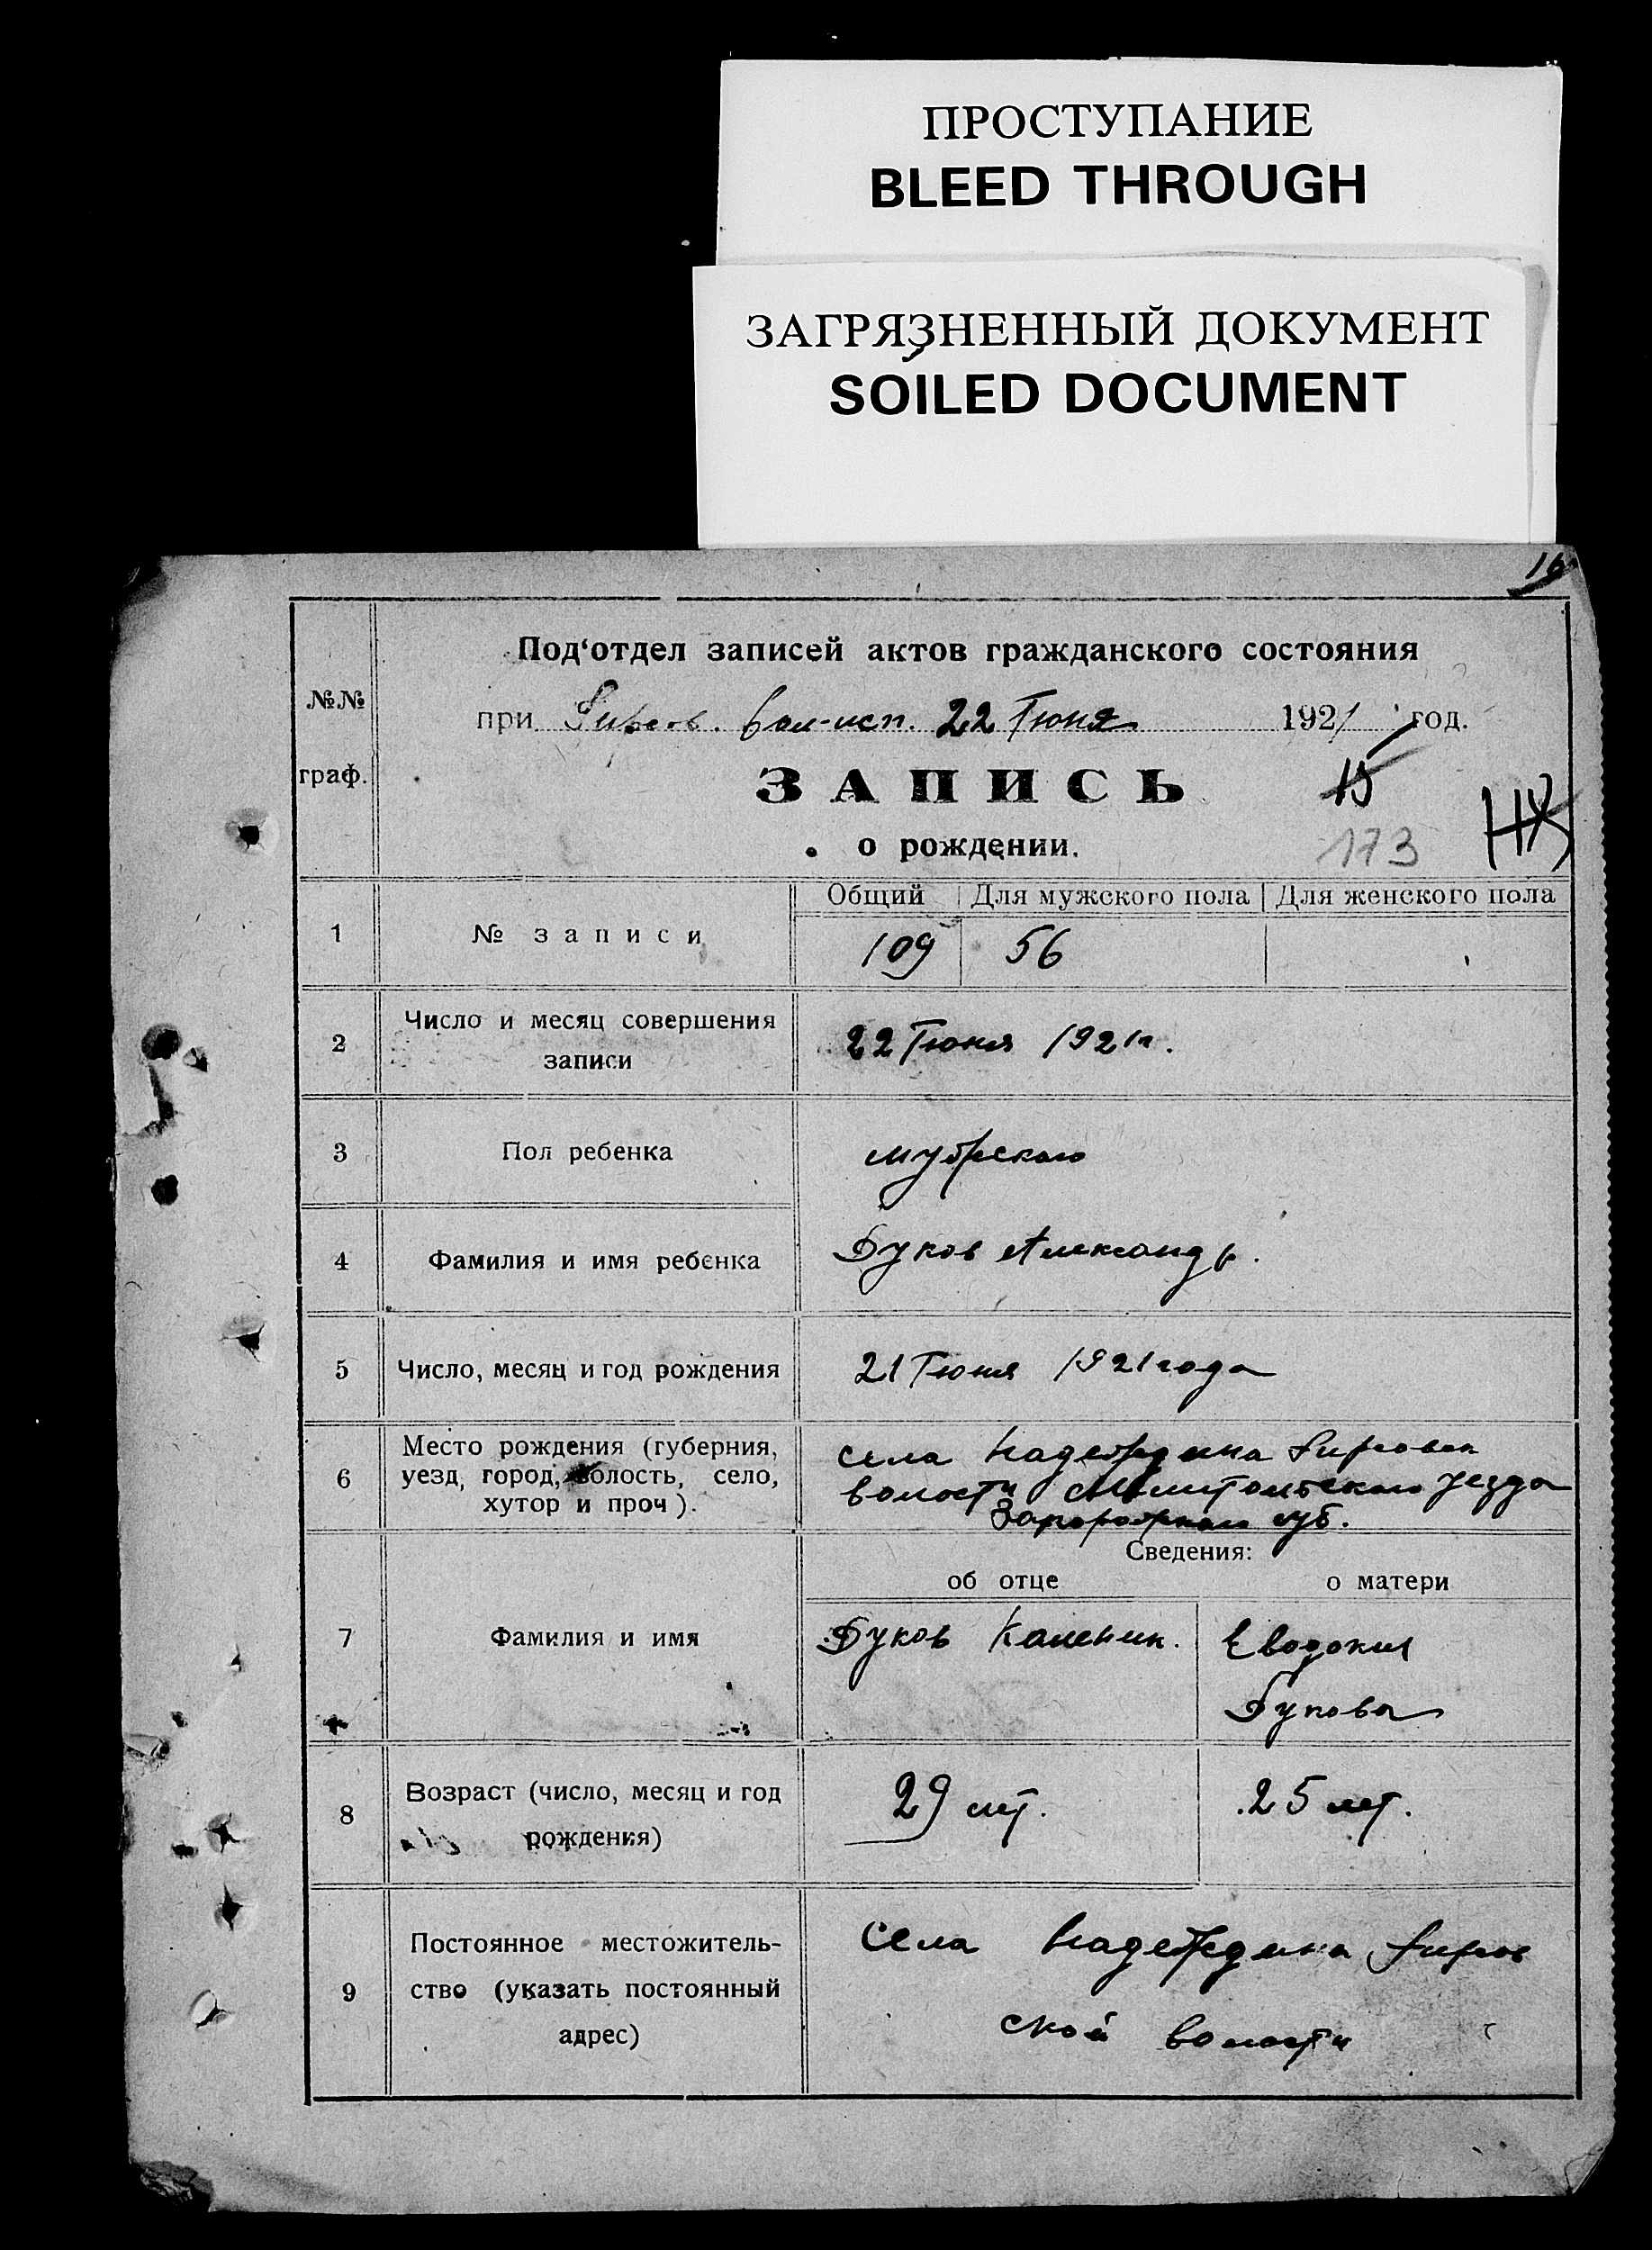 ПРОСТУПАНИЕ
BLEED THROUGH
ЗАГРЯЗНЕННЫЙ ДОКУМЕНТ
SOILED DOCUMENT
16
Под‘отдел записей актов гражданского состояния
№№
при вол-исп. 22 Июня 1921 год.
граф.
ЗАПИСЬ
15
о рождении.
173
Общий Для мужского пола Для женского пола
1 № записи 109 56
2 Число и месяц совершения
записи
22 Июня 1921 г.
3 Пол ребенка мужского
4 Фамилия и имя ребенка Буков Александр.
5 Число, месяц и год рождения 21 Июня 1921 года
6 Место рождения (губерния,
уезд, город, волость, село,
хутор и проч).
села Надеждина
волости Мелитопольского уезда
Запорожской губ.
Сведения:
об отце о матери
7 Фамилия и имя Буков Каленик. Евдокия
Букова
8 Возраст (число, месяц и год
рождения)
29 лет. 25 лет.
9 Постоянное местожитель-
ство (указать постоянный
адрес)
Села Надеждина
ской волости